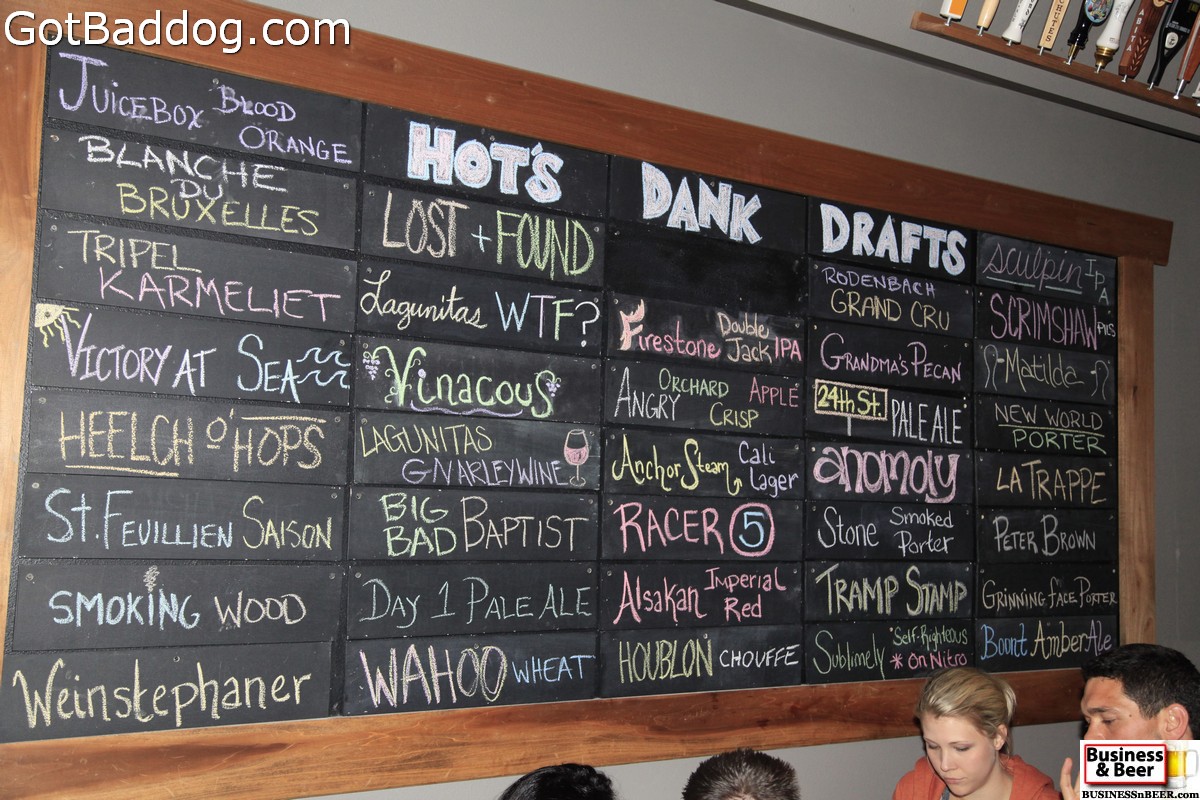 GotBaddog.com
JUICEBOX BLOOD
ORANGE
BLANCHE
DU
BRUXELLES
TRIPEL
KARMELIET
VICTORY AT SEA
HEELCH O'HOPS
St. FEUILLIEN SAISON
SMOKING WOOD
Weinstephaner
HOT'S
LOST + FOUND
Lagunitas WTF?
Vinacous
LAGUNITAS
GNARLEYWINE
BIG
BAD BAPTIST
DAY 1 PALE ALE
WAHOO WHEAT
DANK
Firestone Double
Jack IPA
ANGRY ORCHARD APPLE
CRISP
Anchor Steam Cali
Lager
RACER 5
Alsakan Imperial
Red
HOUBLON CHOUFFE
DRAFTS
RODENBACH
GRAND CRU
GRANDMA'S PECAN
24th St. PALE ALE
anomoly
Stone Smoked
Porter
TRAMP STAMP
Sublimely *Self-Righteous
* on Nitro
Sculpin IPA
SCRIMSHAW PILS
Matilda
NEW WORLD
PORTER
LA TRAPPE
PETER BROWN
GRINNING FACE PORTER
Boont Amber Ale
Business
& Beer
BUSINESSnBEER.com